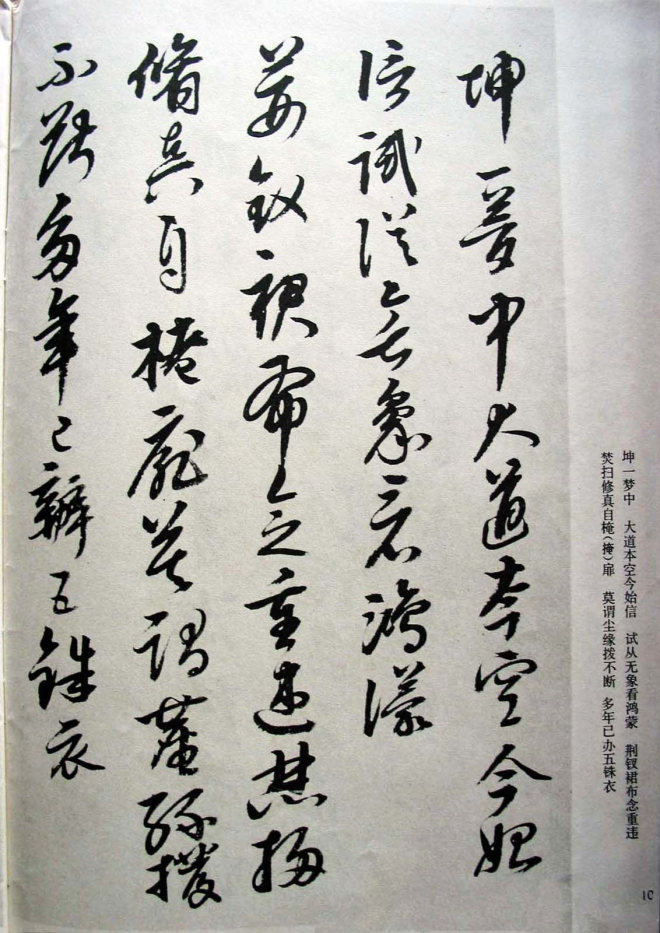 坤一梦中　大道本空今始信　试从无象看鸿蒙　荆钗裙布念重违
焚扫修真自掩(掩)扉　莫谓尘缘拨不断　多年已办五铢衣
坤一夢中大道本空今始
信試從無象看鴻濛
荆釵裙布念重違焚掃
脩真自掩扉莫謂塵緣撥
不斷多年已辦五銖衣
10